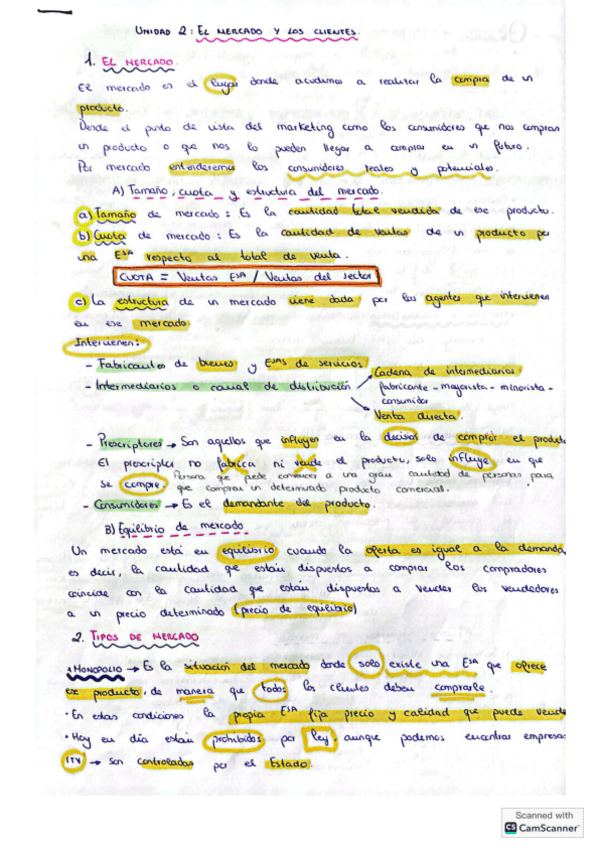 UNIDAD 2: EL MERCADO Y LOS CLIENTES.
1. EL MERCADO.
El mercado es el lugar donde acudimos a realizar la compra de un
producto.
Desde el punto de vista del marketing como los consumidores que nos compran
un producto o que nos lo pueden llegar a comprar en un futuro.
Por mercado entenderemos los consumidores reales y potenciales.
A) Tamaño, cuota y estructura del mercado.
a) Tamaño de mercado: Es la cantidad total vendida de ese producto.
b) Cuota de mercado: Es la cantidad de ventas de un producto por
una ESA respecto al total de venta.
CUOTA = Ventas ESA / Ventas del sector
c) La estructura de un mercado viene dada por los agentes que intervienen
en ese mercado.
Intervienen:
- Fabricantes de bienes y ESAS de servicios.
- Intermediarios o canal de distribución
Cadena de intermediarios:
fabricante - mayorista - minorista -
consumidor
Venta directa.
- Prescriptores → Son aquellos que influyen en la decisión de comprar el product
El prescriptor no fabrica ni vende el producto, solo influye en que
se compre.
Persona que puede convencer a una gran cantidad de personas para
que compren un determinado producto comercial.
- Consumidores → Es el demandante del producto.
B) Equilibrio de mercado.
Un mercado está en equilibrio cuando la oferta es igual a la demanda,
es decir, la cantidad que están dispuestos a comprar los compradores
coincide con la cantidad que están dispuestos a vender los vendedores
a un precio determinado (precio de equilibrio)
2. TIPOS DE MERCADO
MONOPOLIO → Es la situación del mercado donde solo existe una ESA que ofrece
ese producto, de manera que todos los clientes deben comprarle.
· En estas condiciones la propia ESA fija precio y calidad que puede vende
· Hoy en día están prohibidos por ley, aunque podemos encontrar empresas
ITV → Son controladas por el Estado.
Scanned with
CS CamScanner